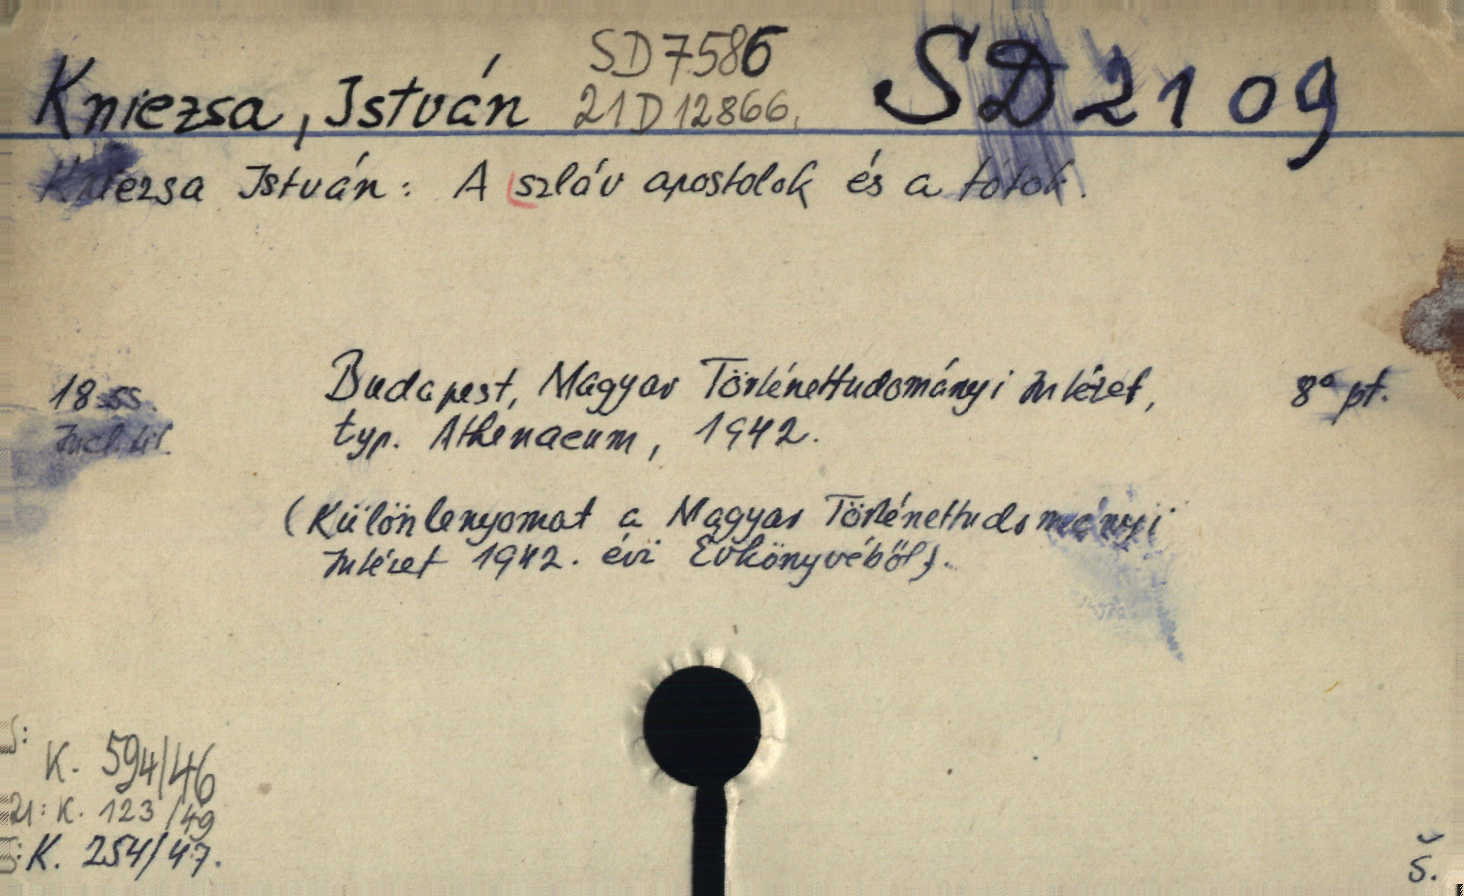 SD7586
Kniezsa, István 21D12866. SD2109
Kniezsa István: A szláv apostolok és a tótok.
18-55. Budapest, Magyar Történettudományi Intézet, 8° pt.
typ. Athenaeum, 1942.
(Különlenyomat a Magyar Történettudományi
Intézet 1942. évi Évkönyvéből).
K. 594/46
21: K. 123/49
K. 254/47.
Š.